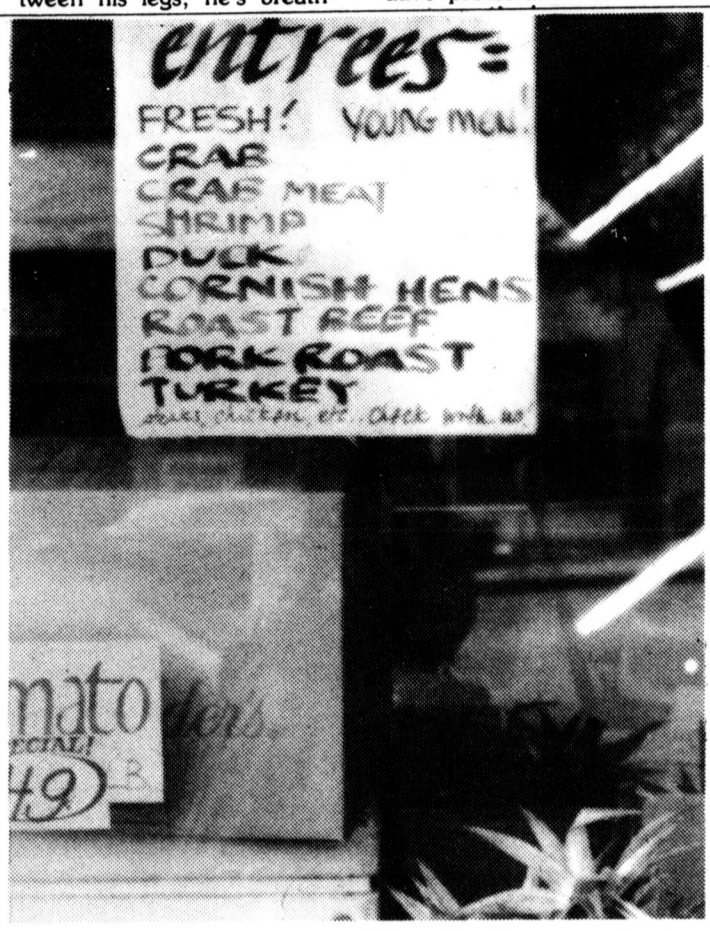 tween his legs, he's breath
entrees=
FRESH! YOUNG MEN!
CRAB
CRAB MEAT
SHRIMP
DUCK
CORNISH HENS
ROAST BEEF
PORK ROAST
TURKEY
chicken, etc.. check with us!
mato
ECIAL!
49
ders.